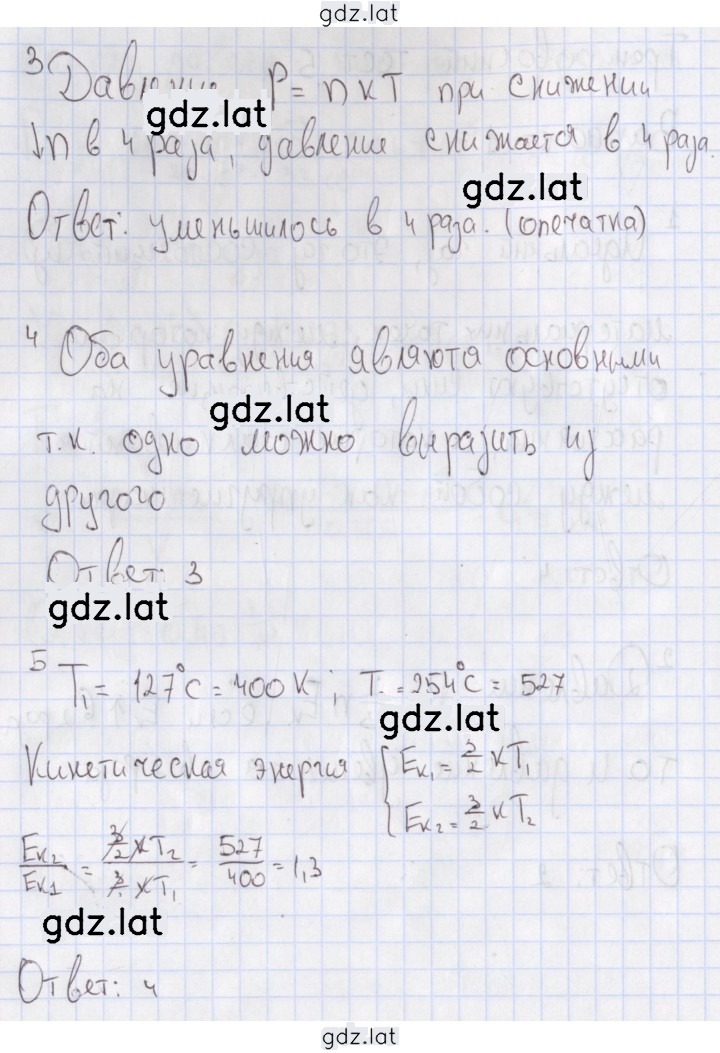 gdz.lat
3 Давление P = nкT при снижении
gdz.lat
↓n в 4 раза, давление снижается в 4 раза.
gdz.lat
Ответ: уменьшилось в 4 раза. (опечатка)
4 Оба уравнения являюта основными
gdz.lat
т.к. одно можно выразить из
другого
Ответ: 3
gdz.lat
5 T₁ = 127°C = 400 K; T = 254°C = 527
gdz.lat
Кинетическая энергия { Eк₁ = 3/2 кT₁
Eк₂ = 3/2 кT₂
Eк₂/Eк1 = 3/2 кT₂ / 3/2 кT₁ = 527/400 = 1,3
gdz.lat
Ответ: 4
gdz.lat